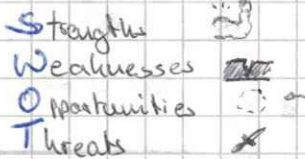 Strengths
Weaknesses
Opportunities
Threats